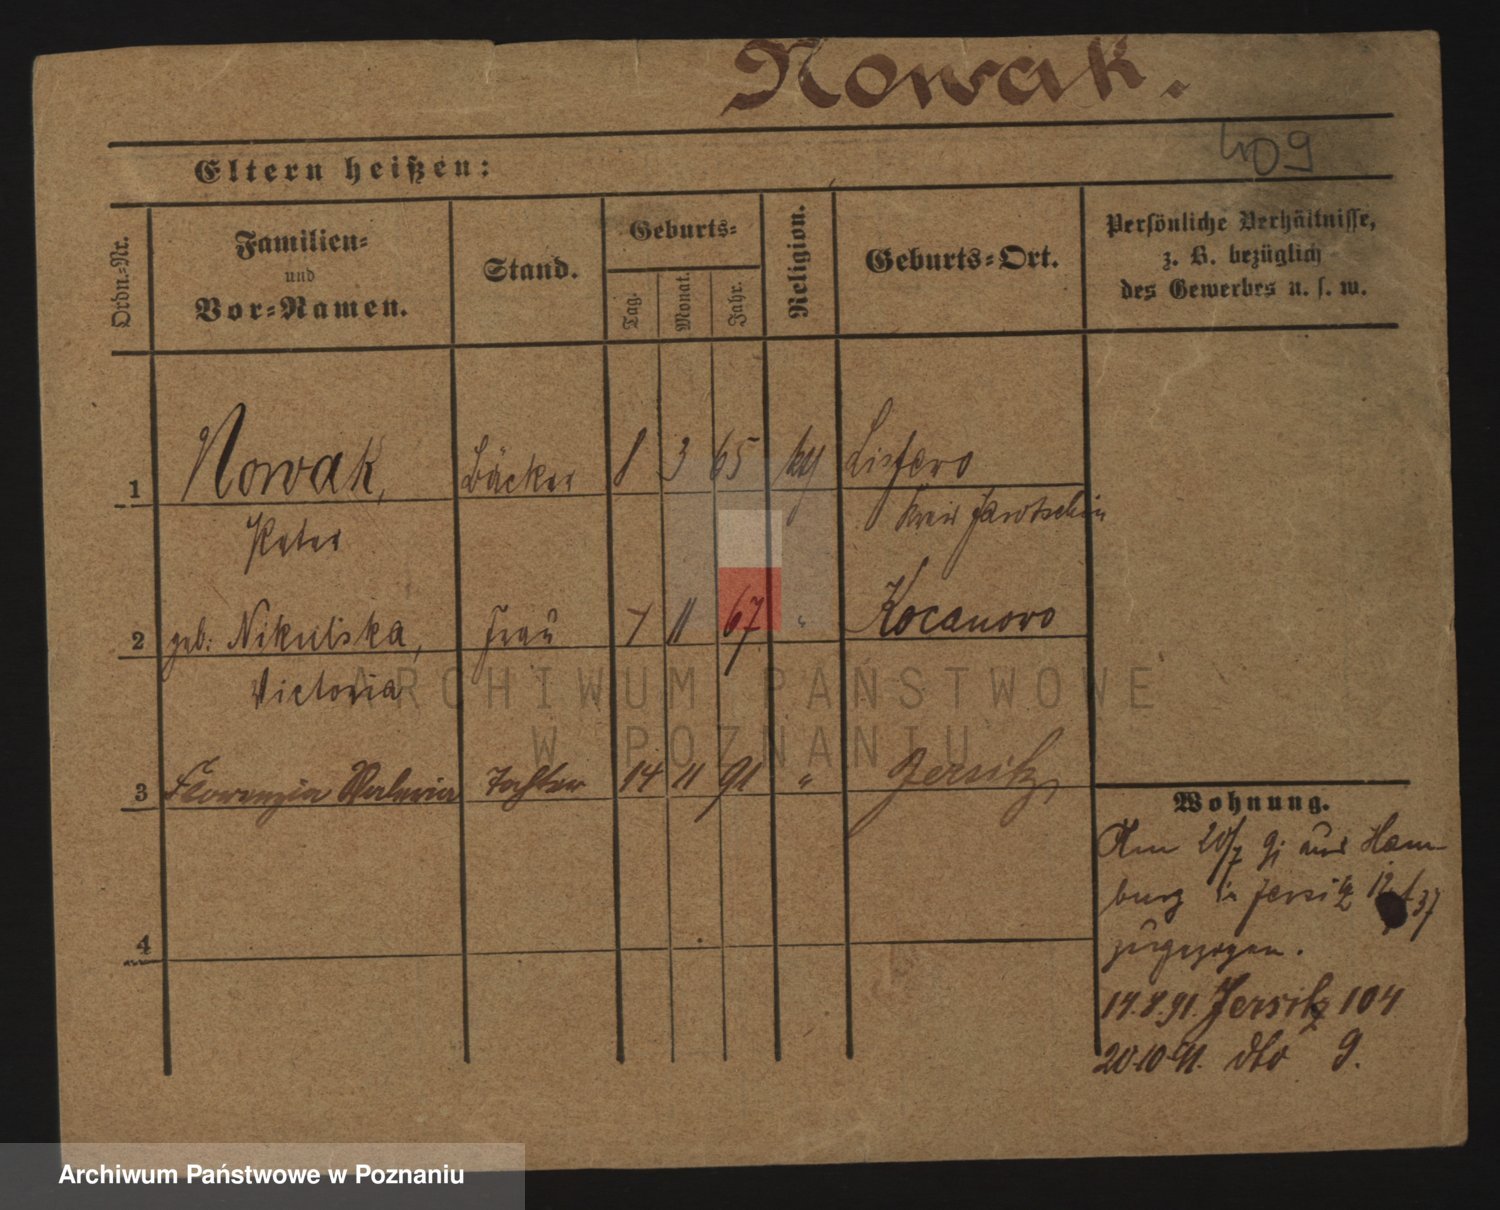 Nowak.
409
Eltern heißen:
Ordn.-Nr.
Familien-
und
Vor-Namen.
Stand.
Geburts-
Tag.
Monat.
Jahr.
Religion.
Geburts-Ort.
Persönliche Verhältnisse,
z. B. bezüglich
des Gewerbes u. s. w.
1 Nowak, Bäcker 8 3 65
Peter Kreis Jarotschin
2 geb: Nikulska, Frau 7 11 67 " Kocanowo
Victoria
3 Florenzia Valeria Tochter 14 11 91 " Jersitz
4
Wohnung.
Am 20/7 91 aus Ham-
burg in Jersitz 37
zugezogen.
14.8.91. Jersitz 104
20.10.91. dto 9.
ARCHIWUM PAŃSTWOWE
W POZNANIU
Archiwum Państwowe w Poznaniu